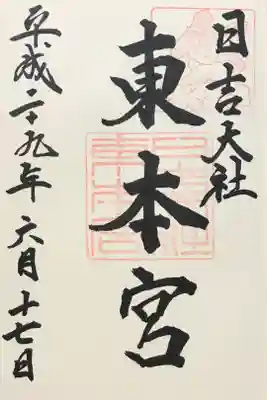 日吉大社
東本宮
平成二十九年六月十七日